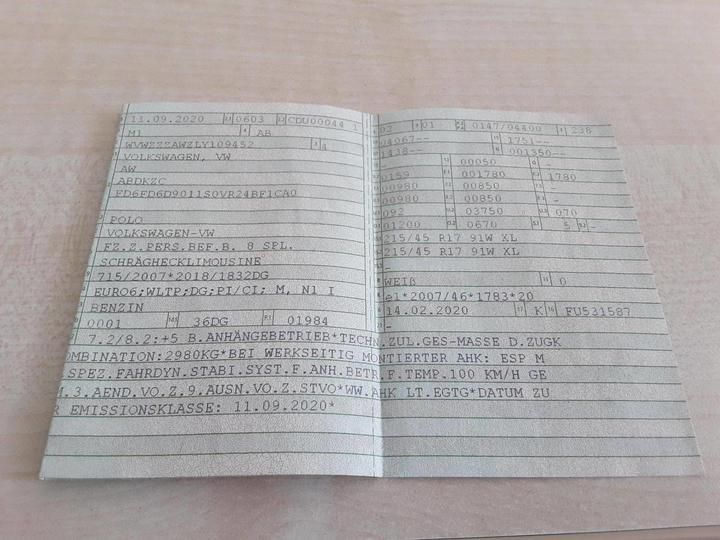 11.09.2020 0603 CDU00044 1
M1 AB
WVWZZZAWZLY109452 4
VOLKSWAGEN, VW
AW
ABDKZC
FD6FD6D9011S0VR24BF1CA0
POLO
VOLKSWAGEN-VW
FZ.Z.PERS.BEF.B. 8 SPL.
SCHRÄGHECKLIMOUSINE
715/2007*2018/1832DG
EURO6;WLTP;DG;PI/CI; M, N1 I
BENZIN
0001 36DG 01984
02 01 0147/04400 238
04067-- 1751--
1438-- 001350--
00050 -
0159 001780 1780
00980 00850 -
00980 00850 -
092 03750 070
01200 0670 5 -
215/45 R17 91W XL
215/45 R17 91W XL
-
WEIß 0
e1*2007/46*1783*20
14.02.2020 K FU531587
-
7.2/8.2:+5 B.ANHÄNGEBETRIEB*TECHN.ZUL.GES-MASSE D.ZUGK
OMBINATION:2980KG*BEI WERKSEITIG MONTIERTER AHK: ESP M
.SPEZ.FAHRDYN.STABI.SYST.F.ANH.BETR.F.TEMP.100 KM/H GE
M.3.AEND.VO.Z.9.AUSN.VO.Z.STVO*WW.AHK LT.EGTG*DATUM ZU
R EMISSIONSKLASSE: 11.09.2020*